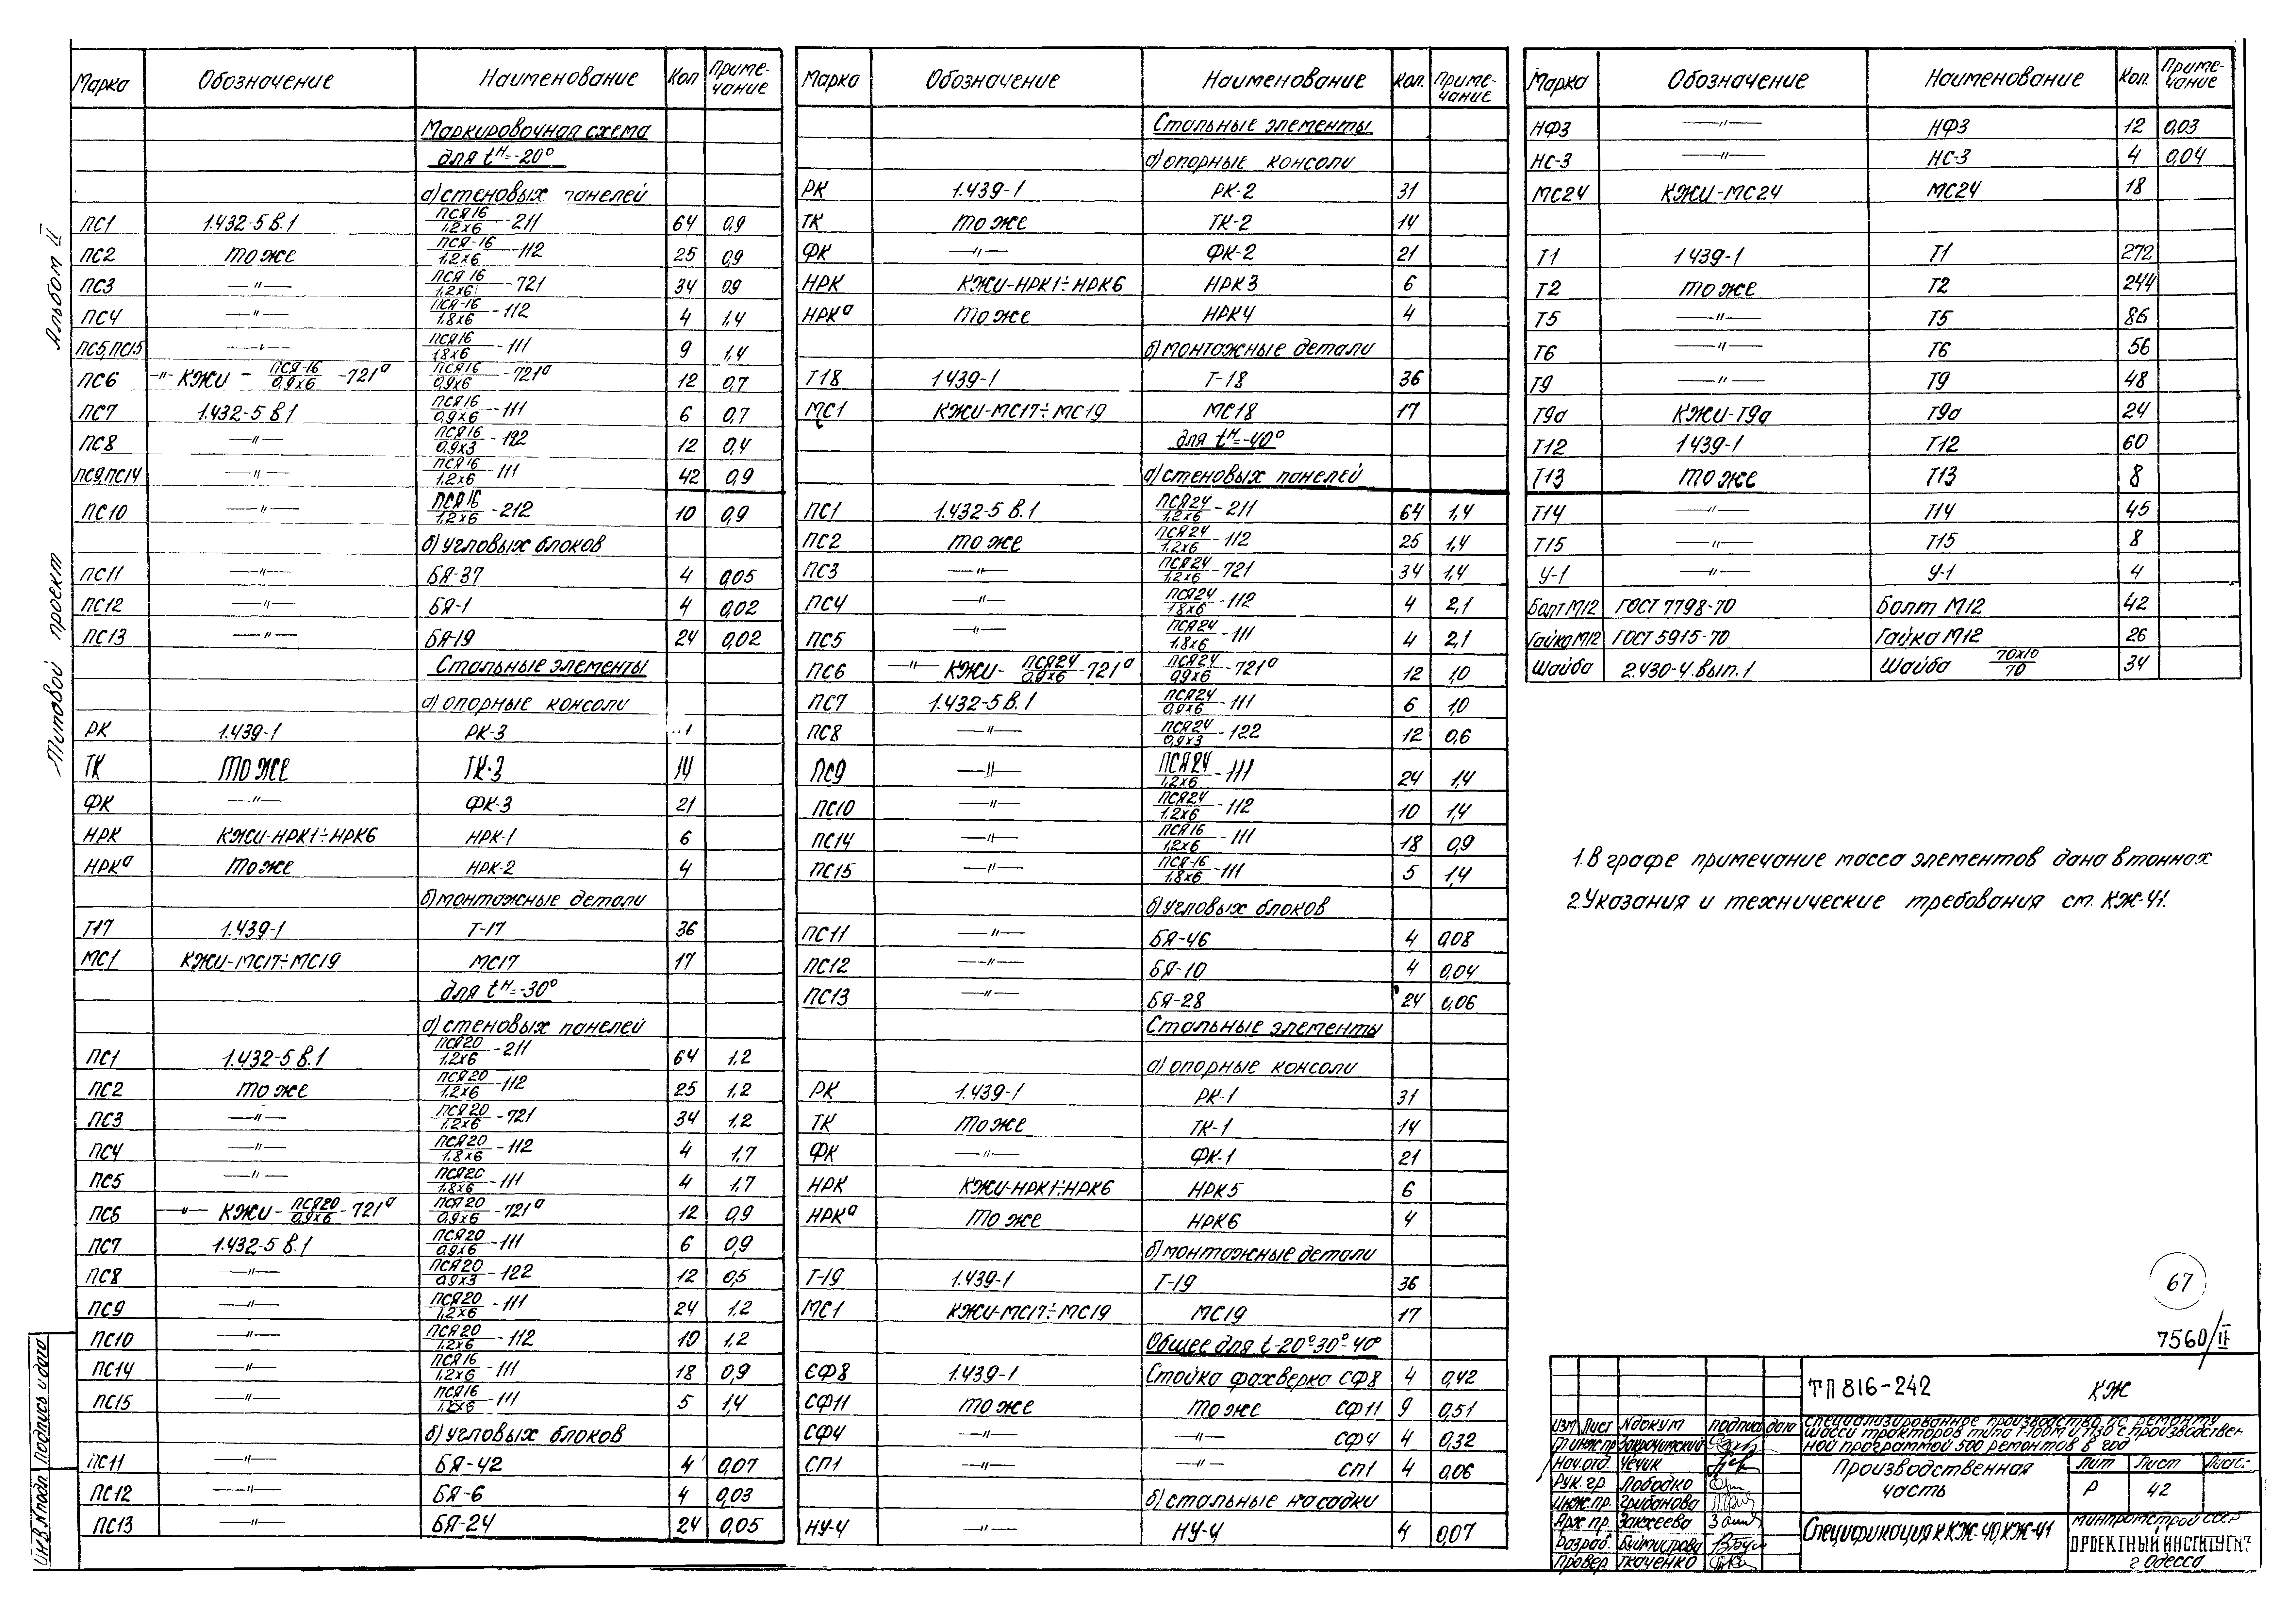 Альбом II
Типовой проект
Инв.№подл. Подпись и дата
Марка Обозначение Наименование Кол Приме-чание
Маркировочная схема
для tн=-20°
а) стеновых панелей
ПС1 1.432-5 в.1 ПСЯ16/1,2х6-211 64 0,9
ПС2 то же ПСЯ-16/1,2х6-112 25 0,9
ПС3 —"— ПСЯ16/1,2х6-721 34 0,9
ПС4 —"— ПСЯ-16/1,8х6-112 4 1,4
ПС5,ПС15 —"— ПСЯ16/1,8х6-111 9 1,4
ПС6 —"— КЖИ-ПСЯ-16/0,9х6-721а ПСЯ16/0,9х6-721а 12 0,7
ПС7 1.432-5 в1 ПСЯ16/0,9х6-111 6 0,7
ПС8 —"— ПСЯ16/0,9х3-122 12 0,4
ПС9,ПС14 —"— ПСЯ16/1,2х6-111 42 0,9
ПС10 —"— ПСЯ16/1,2х6-212 10 0,9
б) угловых блоков
ПС11 —"— БЯ-37 4 0,05
ПС12 —"— БЯ-1 4 0,02
ПС13 —"— БЯ-19 24 0,02
Стальные элементы
а) опорные консоли
РК 1.439-1 РК-3
ТК то же ТК-3 14
ФК —"— ФК-3 21
НРК КЖИ-НРК1÷НРК6 НРК-1 6
НРКа то же НРК-2 4
б) монтажные детали
Т17 1.439-1 Т-17 36
МС1 КЖИ-МС17÷МС19 МС17 17
для tн=-30°
а) стеновых панелей
ПС1 1.432-5 в.1 ПСЯ20/1,2х6-211 64 1,2
ПС2 то же ПСЯ20/1,2х6-112 25 1,2
ПС3 —"— ПСЯ20/1,2х6-721 34 1,2
ПС4 —"— ПСЯ20/1,8х6-112 4 1,7
ПС5 —"— ПСЯ20/1,8х6-111 4 1,7
ПС6 —"— КЖИ-ПСЯ20/0,9х6-721а ПСЯ20/0,9х6-721а 12 0,9
ПС7 1.432-5 в.1 ПСЯ20/0,9х6-111 6 0,9
ПС8 —"— ПСЯ20/0,9х3-122 12 0,5
ПС9 —"— ПСЯ20/1,2х6-111 24 1,2
ПС10 —"— ПСЯ20/1,2х6-112 10 1,2
ПС14 —"— ПСЯ16/1,2х6-111 18 0,9
ПС15 —"— ПСЯ16/1,8х6-111 5 1,4
б) угловых блоков
ПС11 —"— БЯ-42 4 0,07
ПС12 —"— БЯ-6 4 0,03
ПС13 —"— БЯ-24 24 0,05
Марка Обозначение Наименование Кол. Приме-чание
Стальные элементы
а) опорные консоли
РК 1.439-1 РК-2 31
ТК то же ТК-2 14
ФК —"— ФК-2 21
НРК КЖИ-НРК1÷НРК6 НРК3 6
НРКа то же НРК4 4
б) монтажные детали
Т18 1439-1 Т-18 36
МС1 КЖИ-МС17÷МС19 МС18 17
для tн=-40°
а) стеновых панелей
ПС1 1.432-5 в.1 ПСЯ24/1,2х6-211 64 1,4
ПС2 то же ПСЯ24/1,2х6-112 25 1,4
ПС3 —"— ПСЯ24/1,2х6-721 34 1,4
ПС4 —"— ПСЯ24/1,8х6-112 4 2,1
ПС5 —"— ПСЯ24/1,8х6-111 4 2,1
ПС6 —"— КЖИ-ПСЯ24/0,9х6-721а ПСЯ24/0,9х6-721а 12 1,0
ПС7 1.432-5 в.1 ПСЯ24/0,9х6-111 6 1,0
ПС8 —"— ПСЯ24/0,9х3-122 12 0,6
ПС9 —"— ПСЯ24/1,2х6-111 24 1,4
ПС10 —"— ПСЯ24/1,2х6-112 10 1,4
ПС14 —"— ПСЯ16/1,2х6-111 18 0,9
ПС15 —"— ПСЯ-16/1,8х6-111 5 1,4
б) угловых блоков
ПС11 —"— БЯ-46 4 0,08
ПС12 —"— БЯ-10 4 0,04
ПС13 —"— БЯ-28 24 0,06
Стальные элементы
а) опорные консоли
РК 1.439-1 РК-1 31
ТК то же ТК-1 14
ФК —"— ФК-1 21
НРК КЖИ-НРК1÷НРК6 НРК5 6
НРКа то же НРК6 4
б) монтажные детали
Т-19 1.439-1 Т-19 36
МС1 КЖИ-МС17÷МС19 МС19 17
Общее для t-20°-30°-40°
СФ8 1.439-1 Стойка фахверка СФ8 4 0,42
СФ11 то же то же СФ11 9 0,51
СФ4 —"— —"— СФ4 4 0,32
СП1 —"— —"— СП1 4 0,06
б) стальные насадки
НУ-4 —"— НУ-4 4 0,07
Марка Обозначение Наименование Кол. Приме-чание
НФ3 —"— НФ3 12 0,03
НС-3 —"— НС-3 4 0,04
МС24 КЖИ-МС24 МС24 18
Т1 1439-1 Т1 272
Т2 то же Т2 244
Т5 —"— Т5 86
Т6 —"— Т6 56
Т9 —"— Т9 48
Т9а КЖИ-Т9а Т9а 24
Т12 1439-1 Т12 60
Т13 то же Т13 8
Т14 —"— Т14 45
Т15 —"— Т15 8
У-1 —"— У-1 4
Болт М12 ГОСТ 7798-70 Болт М12 42
Гайка М12 ГОСТ 5915-70 Гайка М12 26
Шайба 2.430-4.вып.1 Шайба 70х10/70 34
1. В графе примечание масса элементов дана в тоннах
2. Указания и технические требования см. КЖ-41.
67
7560/II
ТП 816-242 КЖ
Изм Лист №докум подпись дата
Специализированное производство по ремонту
шасси тракторов типа Т-100М и Т-130 с производствен
ной программой 500 ремонтов в год
Гл инж пр Закрочимский
Нач.отд. Чечик
Рук. гр. Лободко
Инж.пр. Грибанова
Арж.пр. Закжеева
Разраб. Буймистрова
Провер Ткаченко
Производственная
часть
Лит Лист Лист
Р 42
Спецификация к КЖ-40, КЖ-41
Минпромстрой СССР
ПРОЕКТНЫЙ ИНСТИТУТ №2
г. Одесса